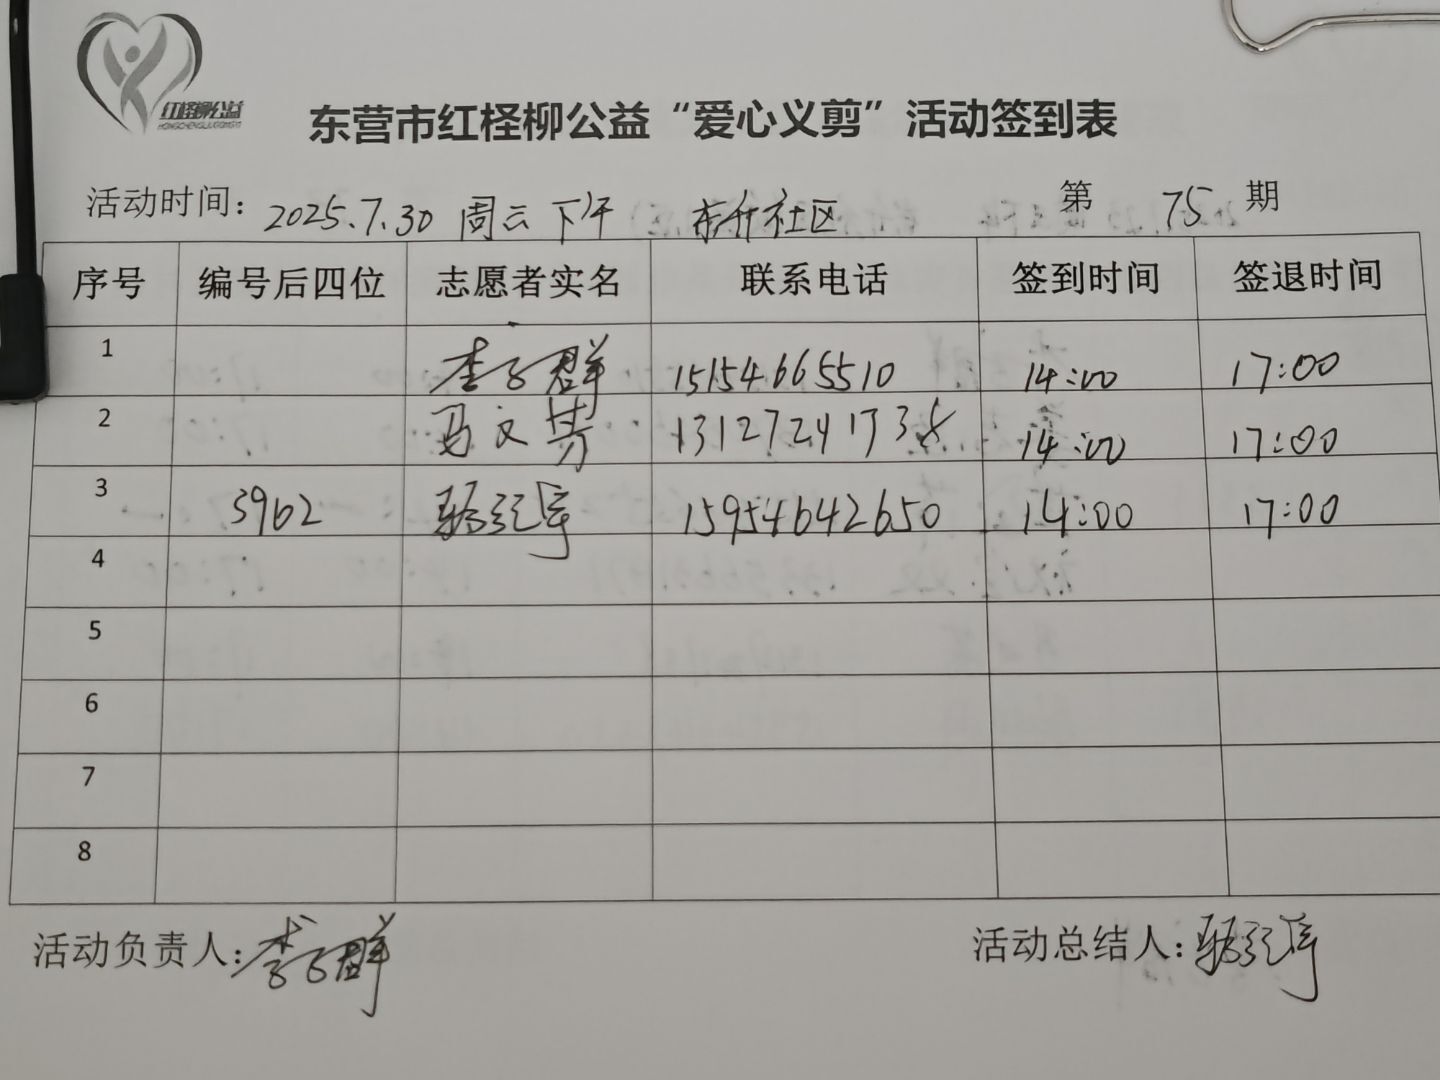 红柽柳公益
HONGCHENGLIUGONGYI
东营市红柽柳公益“爱心义剪”活动签到表
活动时间：2025.7.30 周三 下午 东升社区 第 75 期
序号 编号后四位 志愿者实名 联系电话 签到时间 签退时间
1 李子群 15154665510 14:00 17:00
2 马文芳 1312724173 14:00 17:00
3 3962 15954642650 14:00 17:00
4
5
6
7
8
活动负责人：李子群 活动总结人：